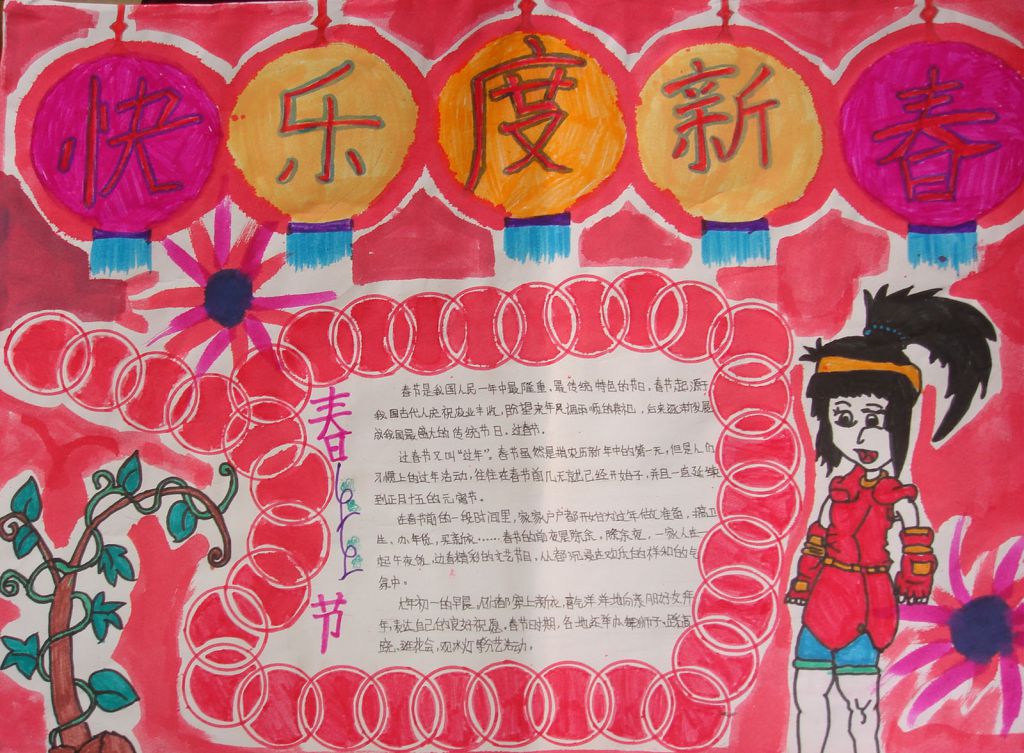 快乐度新春
春
节
春节是我国人民一年中最隆重，最传统特色的节日，春节起源于
我国古代人庆祝农业丰收，盼望来年风调雨顺的，后来逐渐发展
成我国最盛大的传统节日，过春节。
过春节又叫“过年”。春节虽然是指农历新年中的第一天，但是人们
习惯上的过年活动，往往在春节前几天就已经开始了，并且一直延续
到正月十五的元宵节。
在春节前的一段时间里，家家户户都开始为过年做准备，搞卫
生、办年货，买新衣……春节的前夜是除余，除余夜，一家人在一
起午夜饭，边看精彩的文艺节目，人人都沉浸在欢乐的祥和的气
氛中。
大年初一的早晨，人们都穿上新衣，喜气洋洋地向亲朋好友拜
年，表达自己的良好祝愿，春节时期，各地还举办舞狮子、踩高
跷、逛花会，观冰灯等活动。